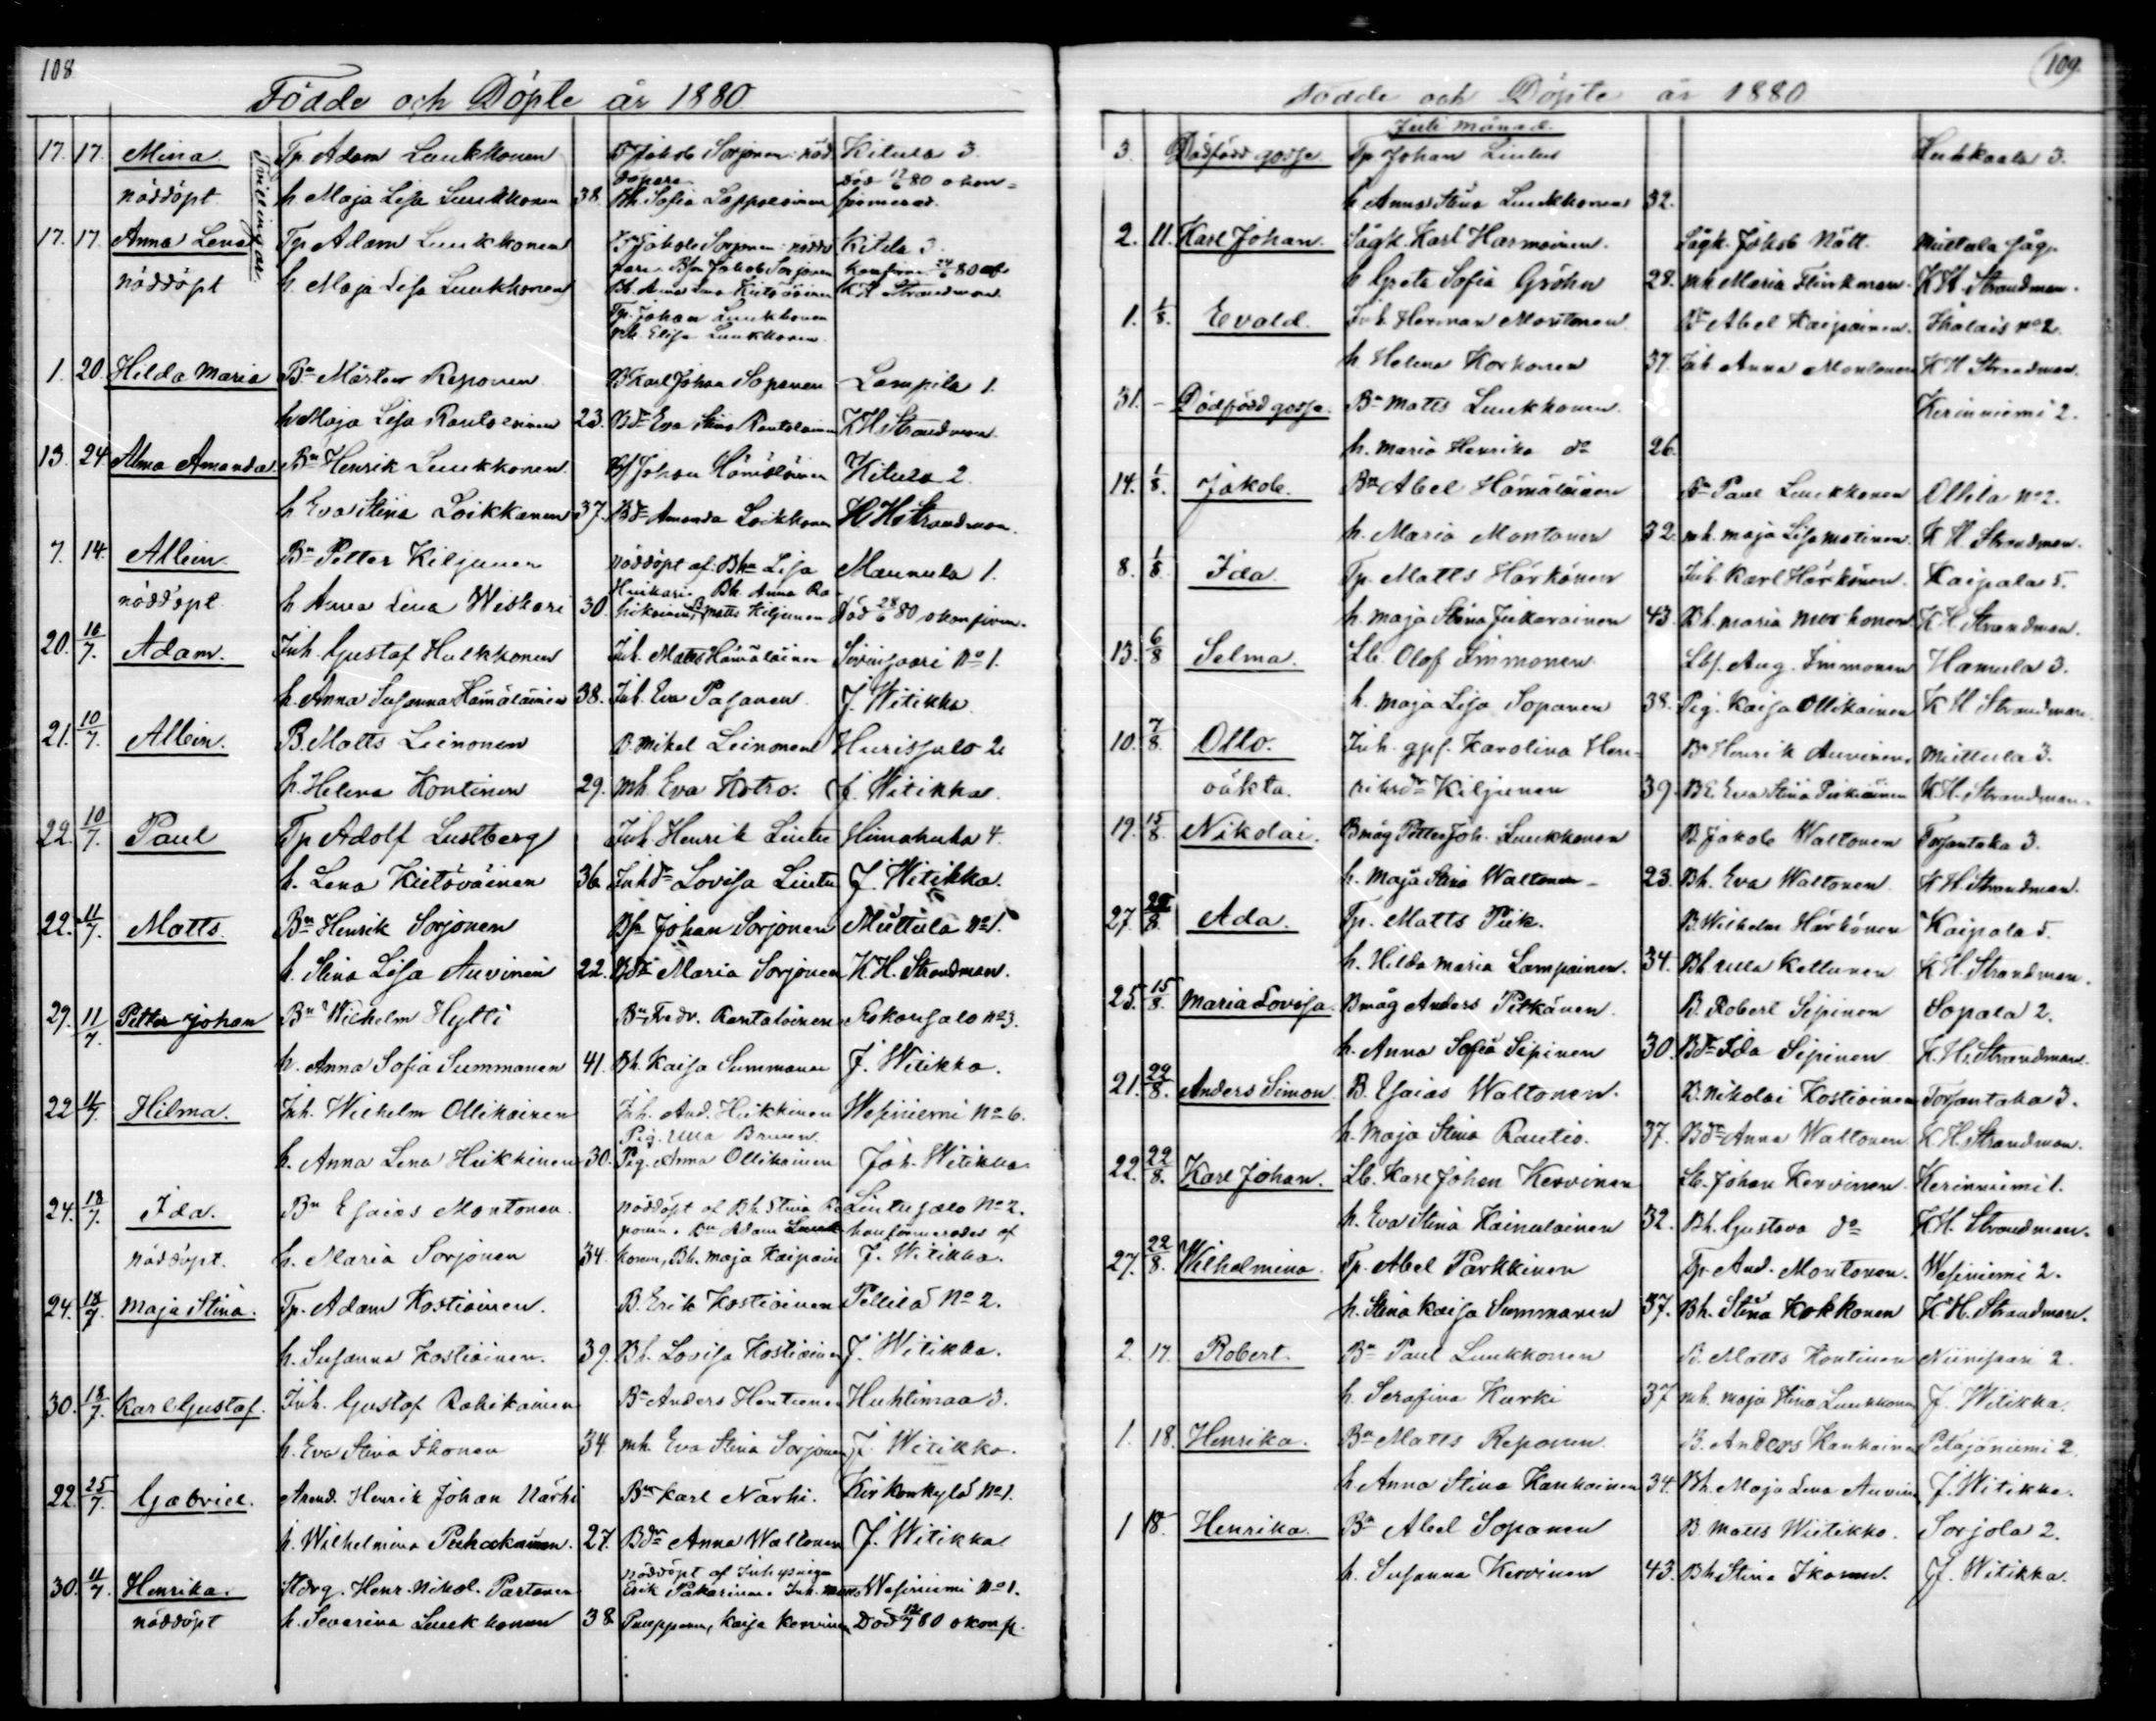 108
Födde och Döpte år 1880
17. 17. Mina Tp. Adam Luukkonen Kitula 3.
Tvillingar
nöddöpt h. Maja Lisa Luukkonen 38. Bh. Sofia död 17/6 80 okonfirmerad.
17. 17. Anna Lena Tp Adam Luukkonen Bn Jakob Sorjonen Kitula 3.
nöddöpt h. Maja Lisa Luukkonen Bh. Anna Lena Kietöväinen K H Strandman.
Tp. Johan Luukkonen
mh. Elisa Luukkonen
1. 20. Hilda Maria Bn Mårten Reponen B Karl Johan Sopanen Lampila 1.
h Maja Lisa Rantalainen 23. Bdr Eva Stina Rantalainen K H Strandman.
13. 24 Alma Amanda Bn Henrik Luukkonen Johan Hämäläinen Kitula 2.
h. Eva Stina Loikkanen 37. Bdr Amanda Loikkanen K H Strandman.
7. 14. Albin Bn Petter Kiljunen nöddöpt af Bhn Lisa Maunula 1.
nöddöpt h Anna Lena Weskari 30. Matts Kiljunen Död 28/6 80 okonfirm.
20. 10/7. Adam. Inh. Gustaf Hulkkonen Inh. Matts Hämäläinen No 1.
h. Anna Susanna Hämäläinen 38. Inh. Eva Pasanen J. Witikka
21. 10/7. Albin. B. Matts Leinonen B. Mikel Leinonen Hurissalo 2
h. Helena Kontinen 29. mh. Eva Kotro. J. Witikka.
22. 10/7. Paul Tp Adolf Lustberg Inh Henrik Lintu Himahuha 4.
h. Lena Kietöväinen 36. Inhdr Lovisa Lintu J. Witikka.
22. 11/7. Matts. Bn Henrik Sorjonen Bsn Johan Sorjonen Miettula No 1.
h. Stina Lisa Auvinen 22. Bdr Maria Sorjonen K H. Strandman.
29. 11/7. Petter Johan Bn Wilhelm Hytti Bn Fredr. Rantalainen Rokansalo No 3.
h. Anna Sofia Summanen 41. Bh. Kaisa Summanen J. Witikka.
22 11/7. Hilma. Inh. Wilhelm Ollikainen Inh. And. Hiekkinen Wesiniemi No 6.
Pig. Ulla
h. Anna Lena Hiekkinen 30. Pig. Anna Ollikainen Joh. Witikka
24. 18/7. Ida. Bn Esaias Montonen nöddöpt af Bh. Stina Reponen. Bn Adam Luukkonen, Lintusalo No 2. konfirmerades af
nöddöpt. h. Maria Sorjonen 34. Bh. Maja J. Witikka.
24. 18/7. Maja Stina. Tp. Adam Kostiainen. B. Erik Kostiainen Pellilä No 2.
h. Susanna Kostiainen. 39. Bh. Lovisa Kostiainen J. Witikka.
30. 18/7. Karl Gustaf. Inh. Gustaf Rahikainen Bn Anders Hentunen Huhtimaa 3.
h. Eva Stina Ikonen 34 mh. Eva Stina Sorjonen J. Witikka.
22 25/7. Gabriel. Arend. Henrik Johan Närhi Bn Karl Närhi. Kirkonkylä No 1.
h. Wilhelmina Puhakainen. 27. Bdr Anna Waltonen J. Witikka
30. 11/7. Henrika. Henr. Nikol. Partanen nöddöpt af Erik Pakarinen. Inh. Wesiniemi No 1.
nöddöpt h. Severina Luukkonen 38 Kaisa Kervinen Död 12/7 80 okonf.
109.
Födde och Döpte år 1880
Juli månad.
3. Dödfödd gosse. Tp Johan Lintu Huhkaala 3.
h Anna Stina Luukkonen 32.
2. 11. Karl Johan. Sågk. Karl Harmoinen. Sågk. Jakob Nätt. Miettula såg.
h Greta Sofia Gröhn 28. mh. Maria Flinkman. K H. Strandman.
1. 1/8. Evald. Inh. Herman Montonen Bn Abel Kaipainen. Ihalais No 2.
h. Helena Korhonen 37. Inh. Anna Montonen K H Strandman.
31. - Dödfödd gosse. Bn Matts Luukkonen. Kerinniemi 2.
h. Maria Henrika do 26.
14. 1/8. Jakob. Bn Abel Hämäläinen Bn Paul Luukkonen Ollila No 2.
h. Maria Montonen 32. mh. Maja Lisa Motinen. K H. Strandman.
8. 1/8. Ida. Tp. Matts Härkönen Inh. Karl Härkönen. Kaipala 5.
h. Maja Stina Jukarainen 43. Bh. Maria K H. Strandman.
13. 6/8 Selma. Lb. Olof Immonen Lbs. Aug. Immonen Hamula 3.
h. Maja Lisa Sopanen 38. Pig. Kaisa Ollikainen K H Strandman.
10. 7/8. Otto. Inh. Karolina Henriksdr Bn Henrik Auvinen. Miettula 3.
oäkta. Kiljunen 39. Eva Stina K H. Strandman.
19. 15/8. Nikolai. Bmåg Petter Joh. Luukkonen B. Jakob Waltonen Torsantaka 3.
h. Maja Stina Waltonen 23. Bh. Eva Waltonen. K H. Strandman.
27. 22/8. Ada. Tp. Matts Piik. B. Wilhelm Härkönen Kaipala 5.
h. Hilda Maria Lampainen. 34. Bh. Ulla Kettunen K H. Strandman.
25. 15/8. Maria Lovisa. Bmåg Anders Pitkänen. B. Robert Sipinen Sopala 2.
h. Anna Sofia Sipinen 30. Bdr Ida Sipinen K. H. Strandman.
21. 22/8. Anders Simon B. Esaias Waltonen. B. Nikolai Kostiainen Torsantaka 3.
h. Maja Stina Rautio. 37. Bdr Anna Waltonen K H. Strandman.
22. 22/8. Karl Johan. Lb. Karl Johan Kervinen Lb. Johan Kervinen. Kerinniemi 1.
h. Eva Stina Kainulainen 32. Bh. Gustava do K H. Strandman.
27. 22/8. Wilhelmina. Tp. Abel Parkkinen Tp. And. Montonen. Wesiniemi 2.
h. Stina Kaisa Summanen 37. Bh. Stina Kokkonen K H. Strandman.
2. 17. Robert. Bn Paul Luukkonen B. Matts Kontinen Niinisaari 2.
h. Serafina Kurki 37 mh. Maja Stina Luukkonen J. Witikka.
1. 18. Henrika. Bn Matts Reponen B. Anders Kankainen Petäjäniemi 2.
h Anna Stina Kankainen 34. Bh. Maja Lena Auvinen J. Witikka.
1 18. Henrika. Bn Abel Sopanen B. Matts Wiitikko. Sorjola 2.
h. Susanna Kervinen 43. Bh Stina Ikonen. J. Witikka.